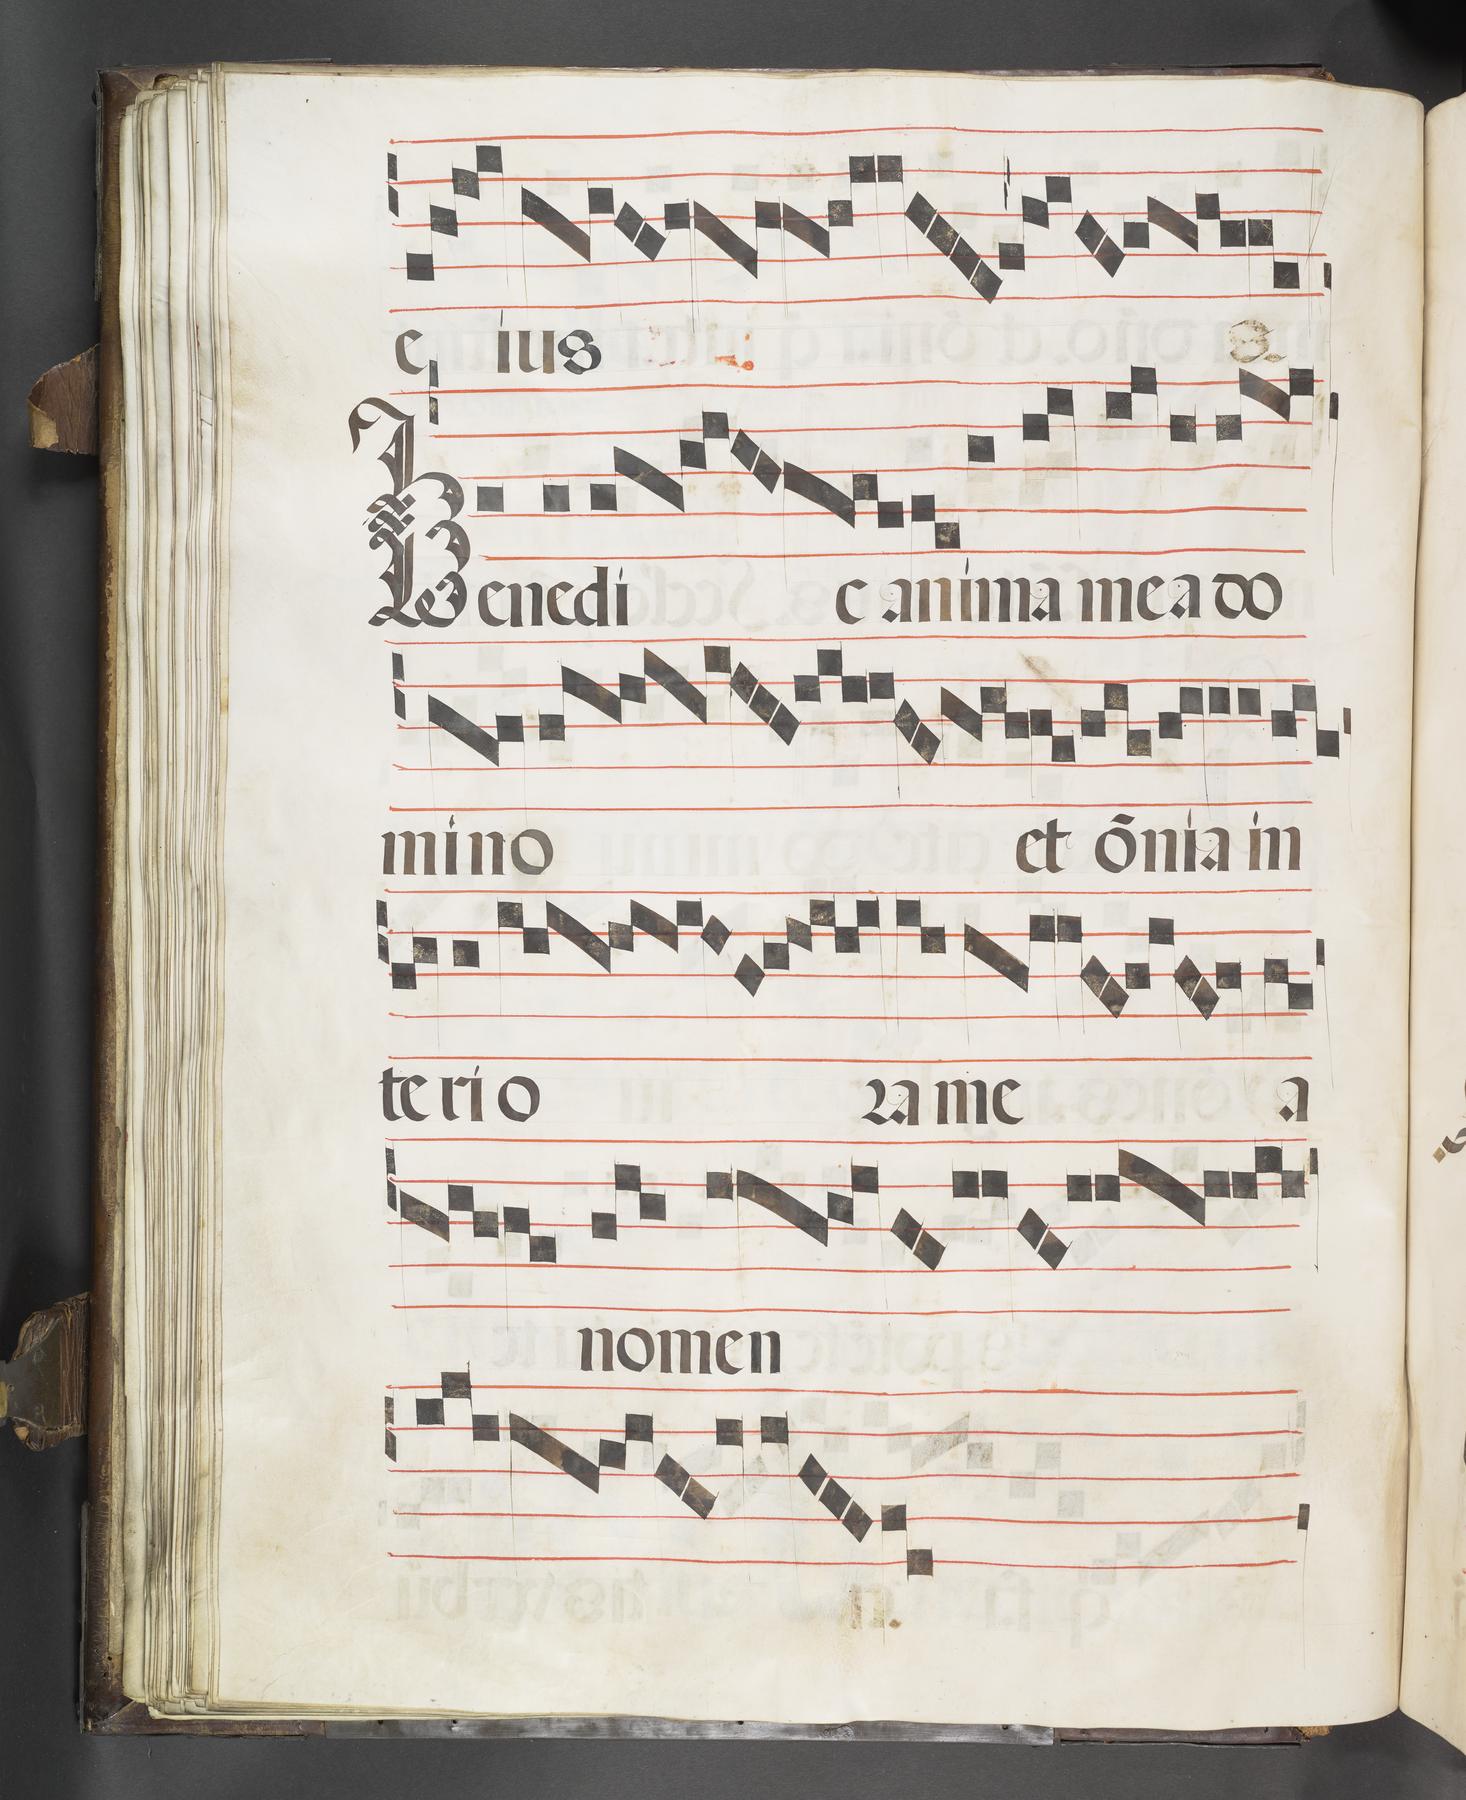 e ius
Benedi c anima mea do
mino et õnia in
terio ra me a
nomen